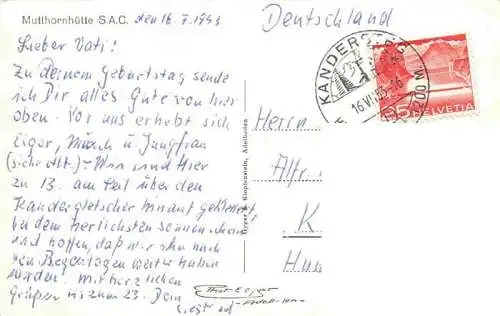 Mutthornhütte S.A.C. den 16.7.1953
Lieber Vati!
Zu Deinem Geburtstag sende
ich Dir alles Gute von hier
oben. Vor uns erhebt sich
Eiger, Mönch u Jungfrau
(siehe Abb.) - Wir sind hier
zu 13. am Seil über den
Kandergletscher hinauf geklettert
bei dem herrlichsten Sonnenschein
und hoffen, daß wir ihn nach
den Regentagen weiter haben
werden. Mit herzlichen
Grüßen bis zum 23. Dein
Deutschland
KANDERSTEG
16.VII.53
1200 M
25 HELVETIA
Herrn
Alfr.
K
Gyger & Klopfenstein, Adelboden